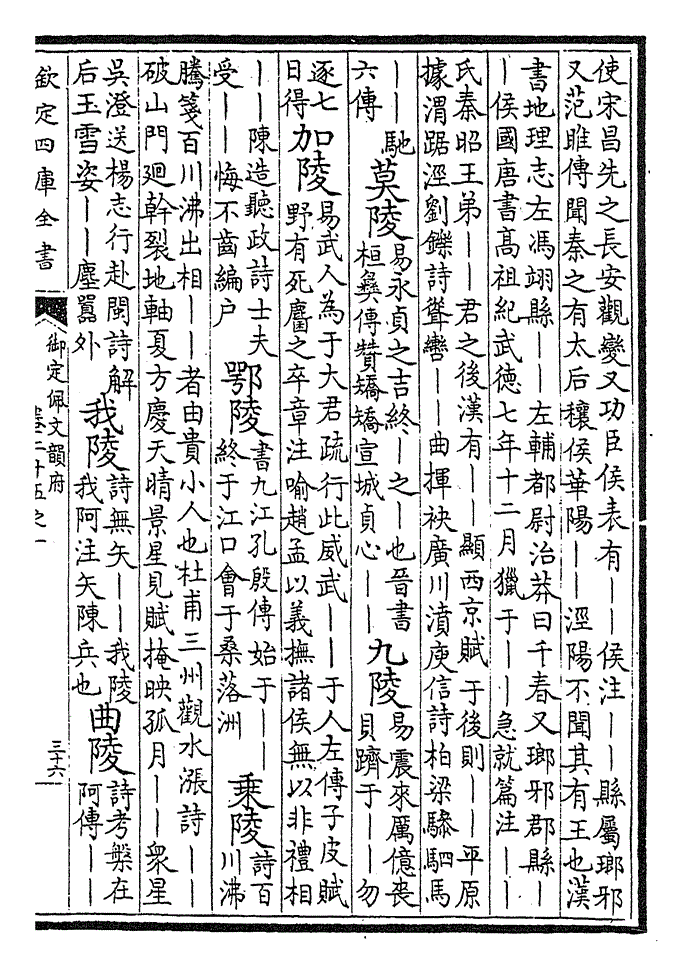 使宋昌先之長安觀變又功臣侯表有——侯注——縣屬瑯邪
又范雎傳聞秦之有太后穰侯華陽——涇陽不聞其有王也漢
書地理志左馮翊縣——左輔都尉治莽曰千春又瑯邪郡縣—
—侯國唐書高祖紀武德七年十二月獵于——急就篇注——
氏秦昭王弟——君之後漢有——顯西京賦于後則——平原
據渭踞涇劉鑠詩聳轡——曲揮袂廣川濆庾信詩柏梁驂駟馬
——馳
六傳
莫陵
易永貞之吉終—之—也晉書
桓彝傳贊矯矯宣城貞心——
九陵
易震來厲億喪
貝躋于——勿
逐七
日得
加陵
易武人為于大君疏行此威武——于人左傳子皮賦
野有死麕之卒章注喻趙孟以義撫諸侯無以非禮相
——陳造聽政詩士夫
受——悔不齒編户
鄂陵
書九江孔殷傳始于——
終于江口會于桑落洲
乗陵
詩百
川沸
騰箋百川沸出相——者由貴小人也杜甫三州觀水漲詩——
破山門廻斡裂地軸夏方慶天晴景星見賦掩映孤月——衆星
吳澄送楊志行赴閩詩解
后玉雪姿——塵嚻外
我陵
詩無矢——我陵
我阿注矢陳兵也
曲陵
詩考槃在
阿傳——
欽定四庫全書
御定佩文韻府
卷二十五之一
三十六